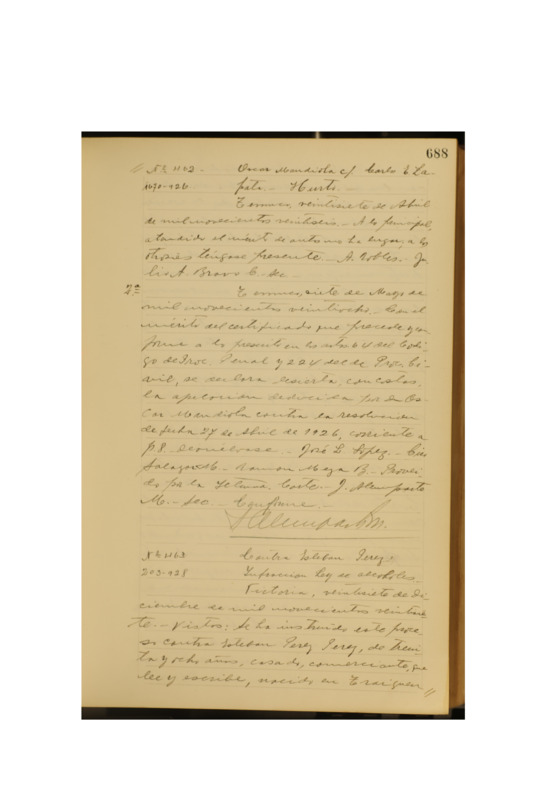 688
// N° 1162. Oscar Mendiola c/ Carlo E. Za-
1670-926 pata. - Hurto. -
Temuco, veintisiete de Abril
de mil novecientos veintiseis. - A lo principal,
atendido el mérito de autos no ha lugar, a los
otrosíes téngase presente - A. Robles - Ju-
lio A Bravo C. Sec
2ª Temuco, siete de Mayo de
mil novecientos veintiocho. - Con el
mérito del certificado que precede y con-
forme a lo prescrito en los artos 64 del Códi-
go de Proc. Penal y 224 del de Proc. Ci-
vil, se declara desierta, con costas,
la apelación deducida por Don Os-
car Mendiola contra la resolución
de fecha 27 de Abril de 1926, corriente a
f 8. Devuélvase. - José L López. -
M. - Ramon Meza B. - Proveí-
do por la Iltma. Corte - J. Alemparte
M. - Sec - Conforme. -
J Alemparte M.
N° 1163 Contra Esteban Perez
203-938 Infracción ley de alcoholes.
Victoria, veintisiete de Di-
ciembre de mil novecientos veintisie-
te. - Vistos: Se ha instruido este proce-
so contra Esteban Perez Perez, de trein-
ta y ocho años, casado, comerciante, que
lee y escribe, nacido en Traiguen //